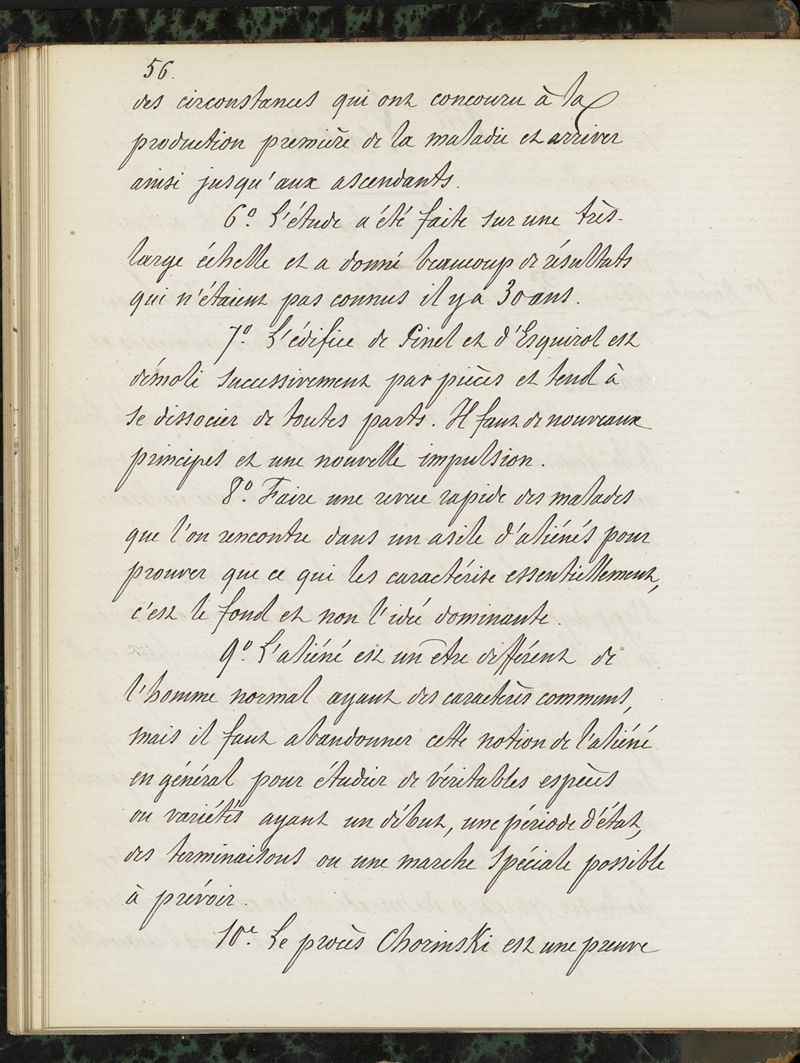 56.
des circonstances qui ont concouru à la
production première de la maladie et arriver
ainsi jusqu'aux ascendants.
6º. L'étude a été faite sur une très-
large échelle et a donné beaucoup de résultats
qui n'étaient pas connus il y a 30 ans.
7º. L'édifice de Pinel et d'Esquirol est
démoli successivement par pièces et tend à
se dissocier de toutes parts. Il faut de nouveaux
principes et une nouvelle impulsion.
8º. Faire une revue rapide des malades
que l'on rencontre dans un asile d'aliénés pour
prouver que ce qui les caractérise essentiellement,
c'est le fond et non l'idée dominante.
9º. L'aliéné est un être différent de
l'homme normal ayant des caractères communs,
mais il faut abandonner cette notion de l'aliéné
en général pour étudier de véritables espèces
ou variétés ayant un début, une période d'état,
des terminaisons ou une marche spéciale possible
à prévoir.
10e. Le procès Chorinski est une preuve